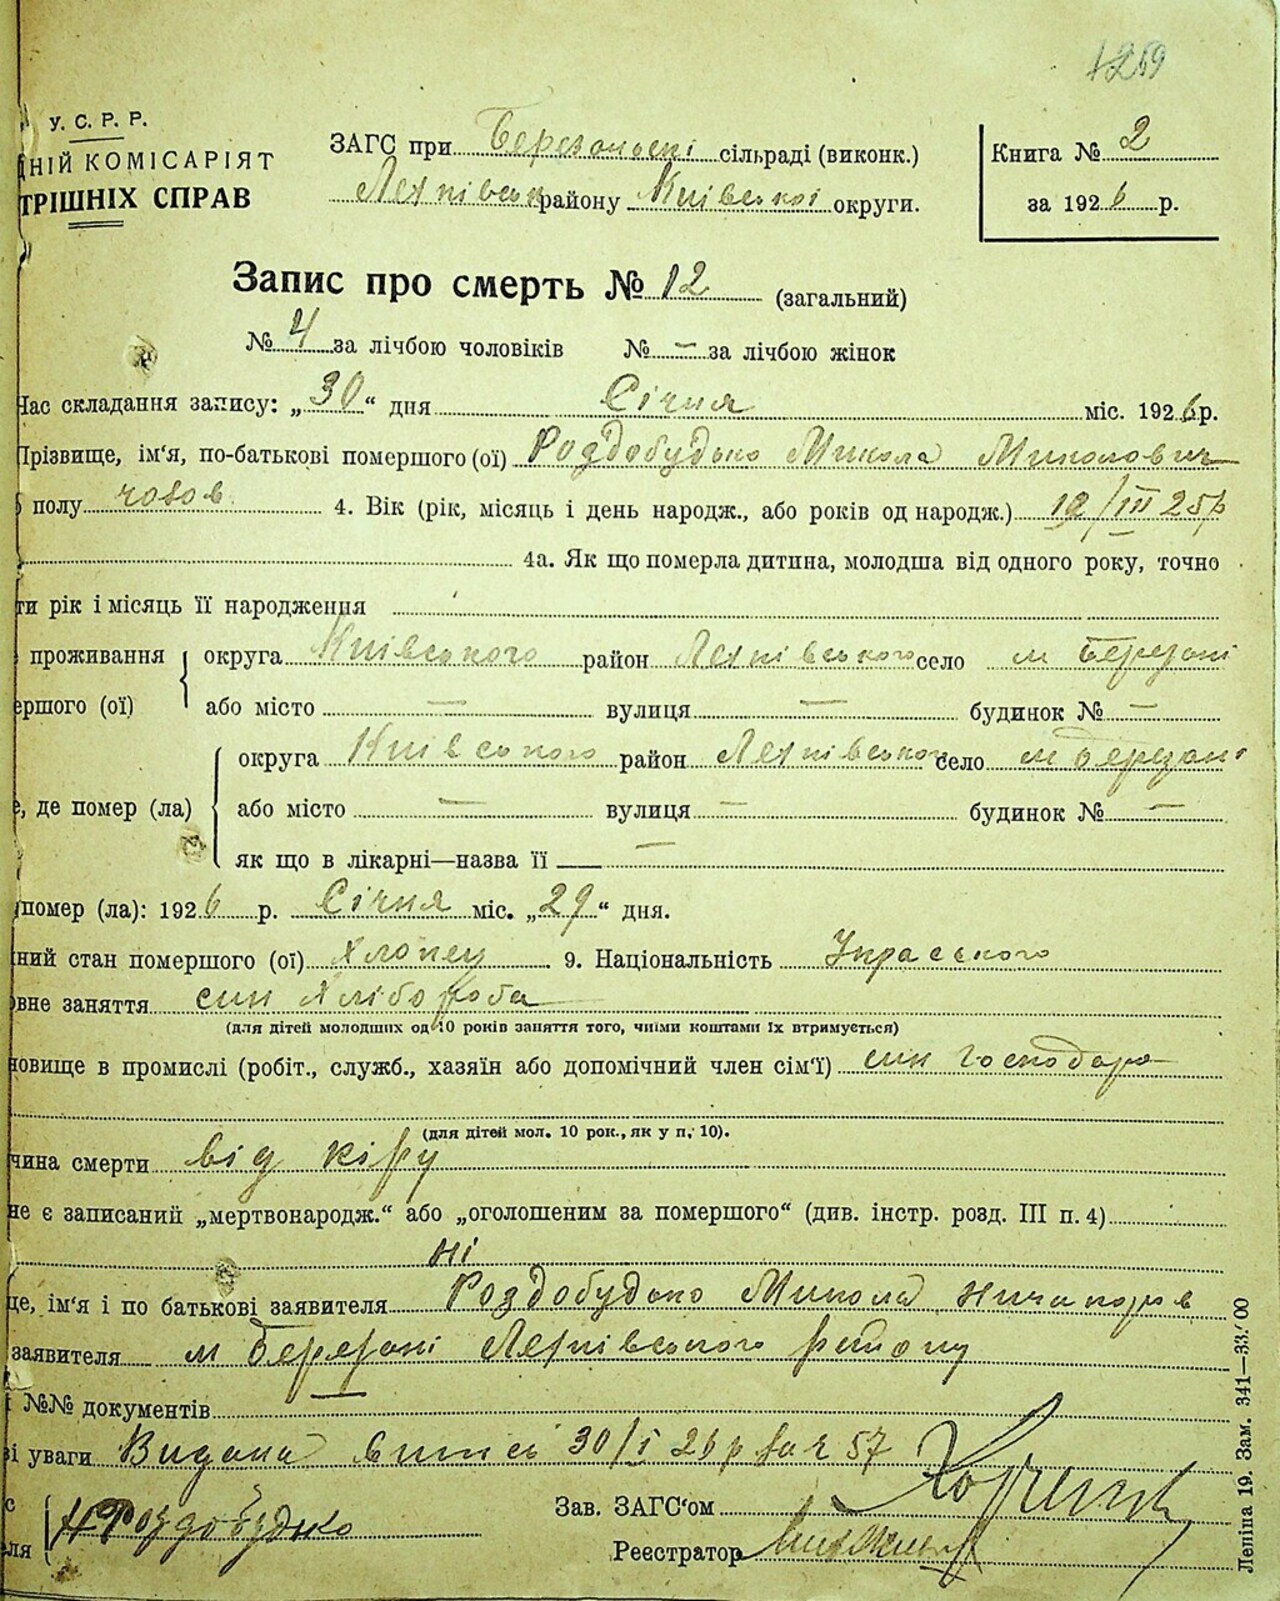 1269
У. С. Р. Р.
НІЙ КОМІСАРІЯТ
ТРІШНІХ СПРАВ
ЗАГС при Березанські сільраді (виконк.)
району Київської округи.
Книга № 2
за 1926 р.
Запис про смерть № 12 (загальний)
№ 4 за лічбою чоловіків № — за лічбою жінок
Час складання запису: „30“ дня Січня міс. 1926 р.
Прізвище, ім'я, по-батькові помершого (ої) Роздобудько Микола Миколович
полу чолов 4. Вік (рік, місяць і день народж., або років од народж.) 19/III 25р
4а. Як що померла дитина, молодша від одного року, точно
ти рік і місяць її народження
проживання округа Київського район село м Березані
ершого (ої) або місто — вулиця — будинок № —
округа Київського район село м Березані
е, де помер (ла) або місто — вулиця — будинок № —
як що в лікарні—назва її —
помер (ла): 1926 р. Січня міс. „29“ дня.
ний стан помершого (ої) хлопец 9. Національність
вне заняття син хлібороба
(для дітей молодших од 10 років заняття того, чиїми коштами їх втримується)
новище в промислі (робіт., служб., хазяїн або допомічний член сім'ї) син господаря
(для дітей мол. 10 рок., як у п. 10).
чина смерти від кіру
не є записаний „мертвонародж.“ або „оголошеним за помершого“ (див. інстр. розд. III п. 4)
ні
це, ім'я і по батькові заявителя Роздобудько Микола Ничипоров
заявителя м Березані району
№№ документів —
і уваги Видана випис 30/I 26 р за № 57
с
ля Н Роздобудько
Зав. ЗАГС'ом
Реєстратор
Леніна 19. Зам. 341—33.'00